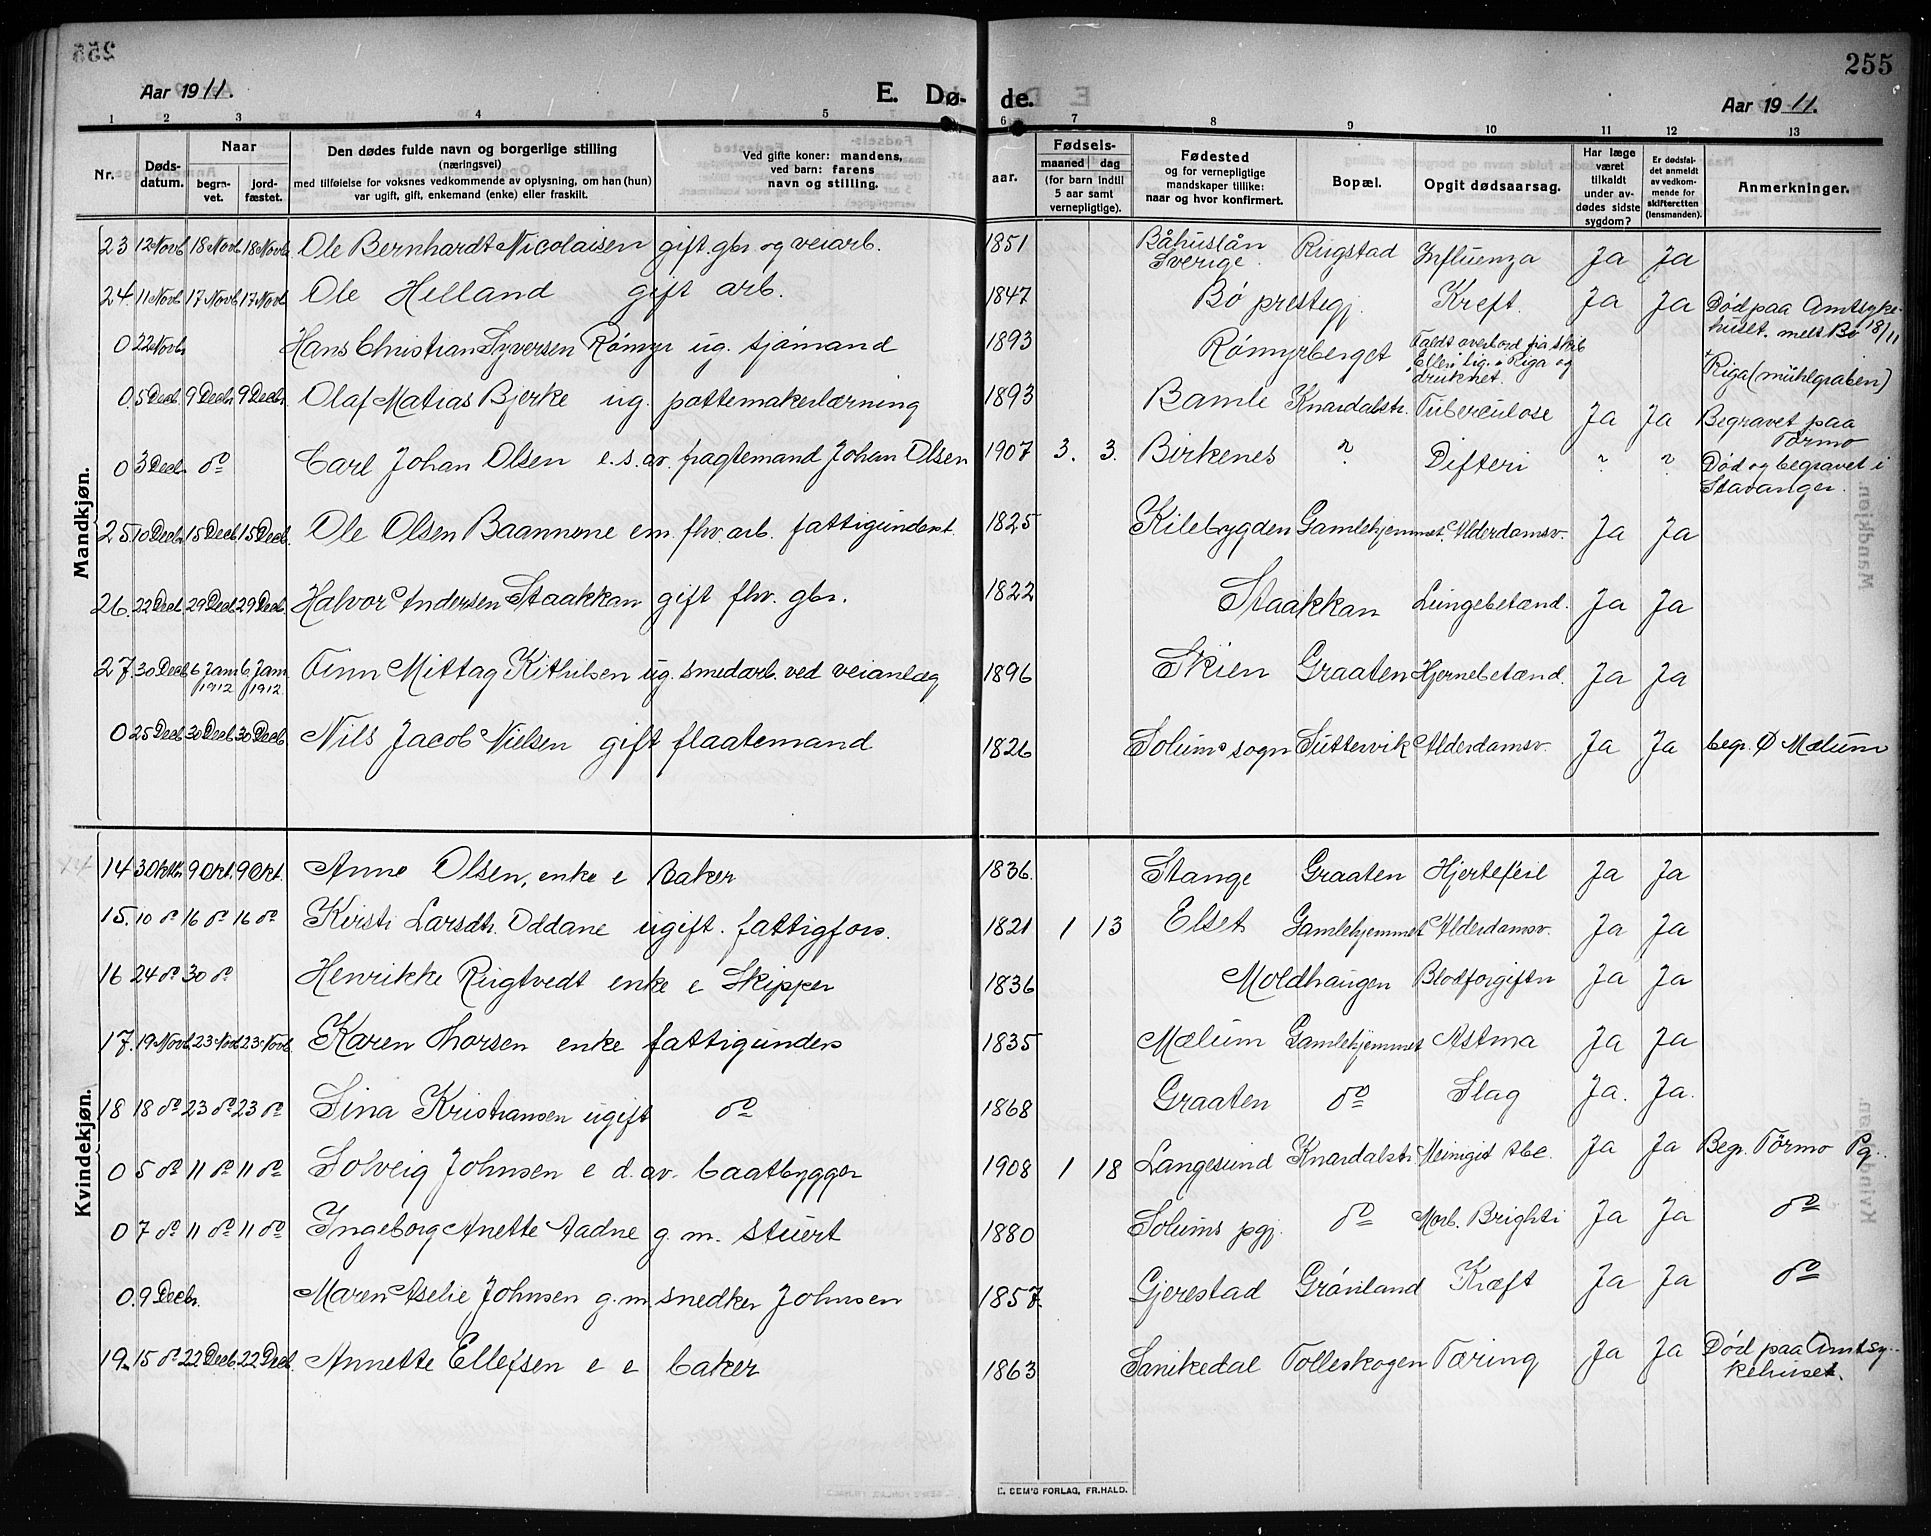 255
Aar 1911.
E. Dø- de.
Aar 1911.
1 2 3 4 5 6 7 8 9 10 11 12 13
Nr. Døds-datum. Naar begra-vet. jord-fæstet. Den dødes fulde navn og borgerlige stilling (næringsvei) med tilføielse for voksnes vedkommende av oplysning, om han (hun) var ugift, gift, enkemand (enke) eller fraskilt. Ved gifte koner: mandens, ved barn: farens navn og stilling. aar. Fødsels- maaned dag (for barn indtil 5 aar samt vernepligtige). Fødested og for vernepligtige mandskaper tillike: naar og hvor konfirmert. Bopæl. Opgit dødsaarsag. Har læge været tilkaldt under av-dødes sidste sygdom? Er dødsfal-det anmeldt av vedkom-mende for skifteretten (lensmanden). Anmerkninger.
Mandkjøn.
23 12 Novb. 18 Novb. 18 Novb. Ole Bernhardt Nicolaisen gift gbr. og veiarb. 1851 Båhuslän Sverige. Rugstad Influenza Ja Ja
24. 11 Novb. 17 Novb. 17 Novb. Ole Helland gift arb. 1847 Bø prestegj. Kreft. Ja Ja Død paa Amtsyke-huset. melt Bø 18/11
0 22 Novb. Hans Christian Syversen Rømyr ug. sjømand 1893 Rømyrberget Faldt overbord fra skib "Ellen" lig. i Riga og druknet. Riga (mühlgraben)
0. 5 Decbr. 9 Decbr. 9 Decbr. Olaf Matias Bjerke ug. pottemakerlærning 1893 Bamle Knardalstr. Tuberculose Ja Ja Begravet paa Tormo
0 3 Decbr. do Carl Johan Olsen e.s.av. fragtemand Johan Olsen 1907 3. 3. Birkenes ? Difteri ? ? Død og begravet i Stavanger.
25. 10 Decbr. 15 Decb. 15 Decb. Ole Olsen Baannene em. fhv. arb. fattigunderst. 1825 Kilebygden Gamlehjemmet. Alderdomsv. Ja Ja
26. 22 Decb. 29 Decb. 29 Decb. Halvor Andersen Staakkan gift fhv. gbr. 1822 Staakkan Lungebetænd. Ja Ja
27. 30 Decb. 6 Jan. 1912 6 Jan. 1912. Finn Mittag Kittilsen ug. smedarb. ved veianlæg 1896 Skien Graaten Hjernebetænd. Ja Ja
0 25 Decb. 30 Decb. 30 Decb. Nils Jacob Nielsen gift flaatemand 1826 Solums sogn Suttervik Alderdomsv. Ja Ja begr. Ø Mælum
Kvindekjøn.
14 3 Oktbr. 9 Okt. 9 Okt. Anne Olsen, enke e Baker 1836. Stange Graaten Hjertefeil Ja Ja
15. 10 do 16 do 16 do Kirsti Larsdtr. Oddane ugift. fattigfors. 1821 1 13 Elset Gamlehjemmet Alderdomsv. Ja Ja
16 24 do 30 do Henrikke Rugtvedt enke e Skipper 1836 Moldhaugen Blodforgiftn Ja Ja
17. 19 Novb. 23 Novb. 23 Novb. Karen Thorsen enke fattigunders 1835 Mælum Gamlehjemmet Astma Ja Ja
18 18 do 23 do 23 do Sina Kristiansen ugift do 1868 Graaten do Slag Ja. Ja.
0 5 do 11 do 11 do Solveig Johnsen e d. av. baatbygger 1908 1 18 Langesund Knardalstr. Meningit tbc. Ja Ja Begr. Tormo Pg.
0 7 do 11 do 11 do Ingeborg Anette Aadne g. m. stuert 1880 Solums pgj. do Morb. Brighti Ja Ja do
0. 9 Decbr. Maren Aselie Johnsen g.m. snedker Johnsen 1857. Gjerestad Grønland Kræft Ja Ja do
19. 15 do 22 Decb. 22 Decb. Annette Ellefsen e e baker 1863 Sanikedal Folleskogen Tæring Ja Ja Død paa Amtsy-kehuset.
E. SEM'S FORLAG, FR.HALD.